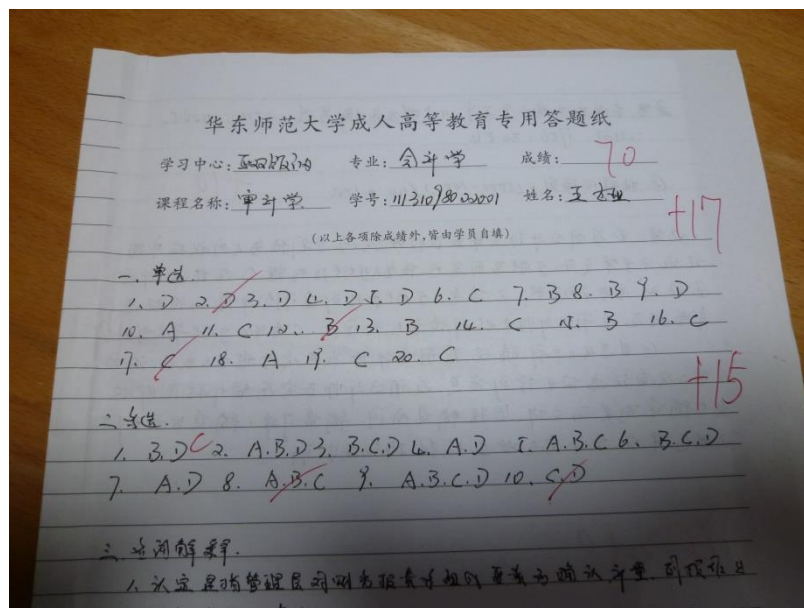 华东师范大学成人高等教育专用答题纸
学习中心: 专业:会计学 成绩:70
课程名称:审计学 学号:11131098022001 姓名:王
(以上各项除成绩外,皆由学员自填)
+17
一、单选.
1. D 2. D 3. D 4. D 5. D 6. C 7. B 8. B 9. D
10. A 11. C 12. B 13. B 14. C 15. B 16. C
17. C 18. A 19. C 20. C
+15
二、多选.
1. B.D C 2. A.B.D 3. B.C.D 4. A.D 5. A.B.C 6. B.C.D
7. A.D 8. A.B.C 9. A.B.C.D 10. C.D
三、名词解释.
1. 认定是指管理层对财务报表组成要素的确认、计量、列报作出